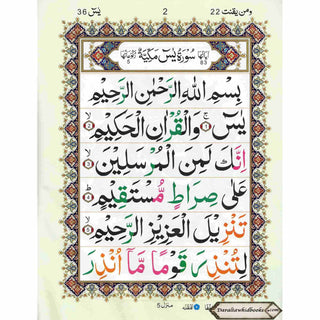 ومن يقنت 22 2 يٰسٓ 36
اٰيَاتُهَا 83 سُوْرَةُ يٰسٓ مَكِّيَّةٌ رُكُوْعَاتُهَا 5
بِسْمِ اللهِ الرَّحْمٰنِ الرَّحِيْمِ
يٰسٓ ۚ ① وَالْقُرْاٰنِ الْحَكِيْمِ ۙ ②
اِنَّكَ لَمِنَ الْمُرْسَلِيْنَ ۙ ③
عَلٰى صِرَاطٍ مُّسْتَقِيْمٍ ؕ ④
تَنْزِيْلَ الْعَزِيْزِ الرَّحِيْمِ ۙ ⑤
لِتُنْذِرَ قَوْمًا مَّاۤ اُنْذِرَ
منزل 5
Darultawhidbooks.com